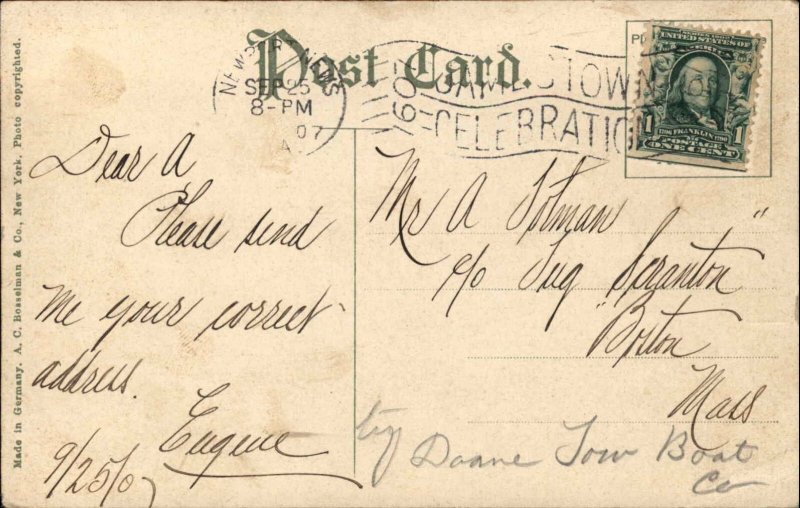 Post Card.
NEWPORT NEWS
SEP 25
8-PM
07
VA
1607
JAMESTOWN
CELEBRATION
1907
UNITED STATES OF
AMERICA
1706 FRANKLIN 1790
1 1
POSTAGE
ONE CENT
Made in Germany. A. C. Bosselman & Co., New York. Photo copyrighted.
Dear A
Please send
me your correct
address.
Eugene
9/25/07
Mr A
c/o Tug "Scranton"
Boston
Mass
try Doane Tow Boat
Co